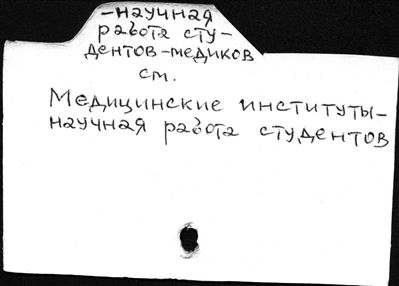 -научная
работа сту-
дентов-медиков
см.
Медицинские институты-
научная работа студентов